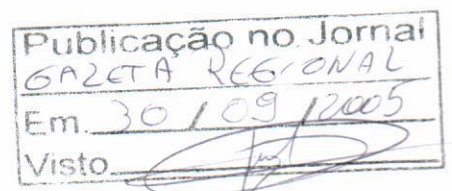 Publicação no Jornal
GAZETA REGIONAL
Em 30 / 09 / 2005
Visto